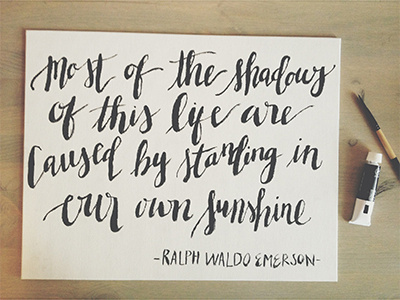 Most of the shadows
of this life are
Caused by standing in
our own sunshine
-RALPH WALDO EMERSON-